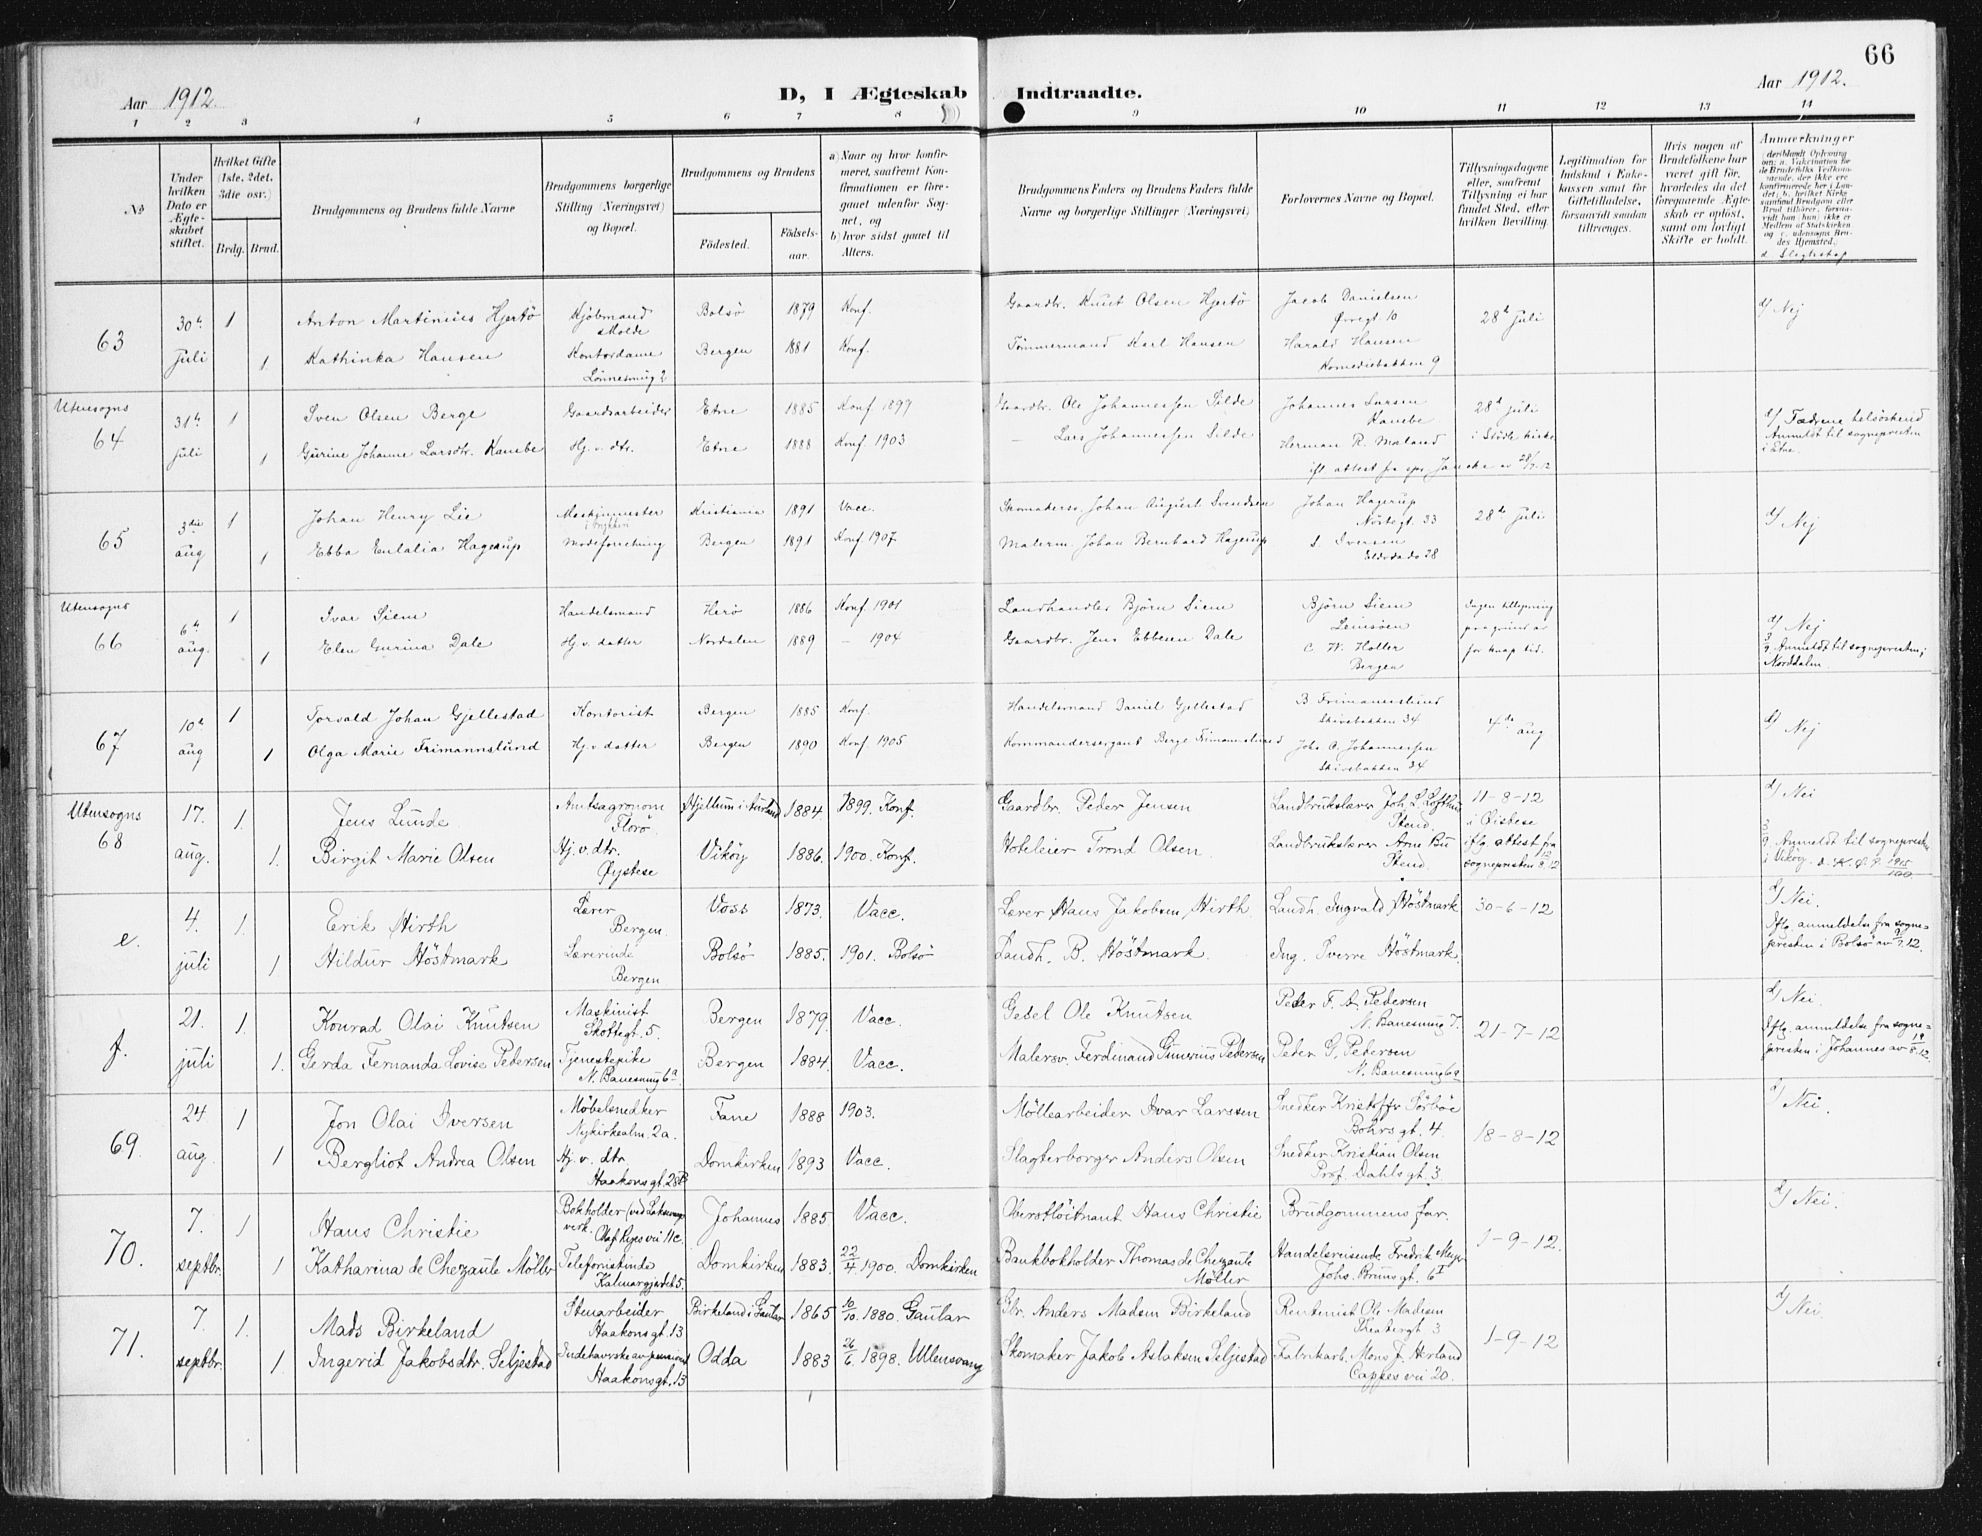 66
Aar 1912.
D, I Ægteskab Indtraadte.
Aar 1912.
1 2 3 4 5 6 7 8 9 10 11 12 13 14
No
Under hvilken Dato er Ægteskabet stiftet.
Hvilket Gifte (1ste, 2det, 3die osv.)
Brdg. Brud.
Brudgommens og Brudens fulde Navne
Brudgommens borgerlige Stilling (Næringsvei) og Bopæl.
Brudgommens og Brudens
Födested. Födselsaar.
a) Naar og hvor konfirmeret, saafremt Konfirmationen er foregaaet udenfor Sognet, og
b) hvor sidst gaaet til Alters.
Brudgommens Faders og Brudens Faders fulde Navne og borgerlige Stillinger (Næringsvei)
Forlovernes Navne og Bopæl.
Tillysningsdagene eller, saafremt Tillysning ei har fundet Sted, efter hvilken Bevilling.
Legitimation for Indskud i Enkekassen samt for Giftetilladelse, forsaavidt saadan tiltrænges.
Hvis nogen af Brudefolkene har været gift før, hvorledes da det foregaaende Ægteskab er opløst, samt om lovligt Skifte er holdt.
Anmærkninger
deriblandt Oplysning om: a. Vaktination for de Brudefolks Vedkommende, der ikke ere konfirmerede her i Landet; b. hvilket Kirkesamfund Brudgom eller Brud tilhører, forsaavidt han (hun) ikke er Medlem af Statskirken og c. udensogns Brudes Hjemsted.
d. Slegtskap
63 30te juli 1 Anton Martinius Hjertö Kjöbmand Molde Bolsö 1879 Konf. Gaardbr. Knut Olsen Hjertö Jacob Danielsen Øvregt. 10 28de juli d/ Nej
1 Kathinka Hansen Kontordame Bergen 1881 Konf. Tömmermand Karl Hansen Harald Hansen Komediebakken 9
Utensogns
64 31te juli 1 Sven Olsen Berge Gaardsarbeider Etne 1885 Konf 1899 Gaardbr. Ole Johannessen Silde Johannes Larsen Kambe 28de juli d/ Fædrene helsöskend
1 Gurine Johanne Larsdtr. Kambe Hj. v. dtr. Etne 1888 Konf 1903 – Lars Johannessen Silde Herman R. Maland Anmeldt til sognepresten i Etne.
65 3die aug 1 Johan Henry Lie Maskinmester Kristiania 1891 Vacc. Skomakersv. Johan August Svendsen Johan Hagerup Nöstegt. 33 28de juli d/ Nej
1 Ebba Eulalia Hagerup Modeforretning Bergen 1891 Konf 1907 Malerm. Johan Bernhard Hagerup S. Iversen 28
Utensogns
66 6te aug. 1 Ivar Siem Handelsmand Herö 1886 Konf 1901 Landhandler Björn Siem Björn Siem Leinsöen Ingen tillysning paa grund av for knap tid. d/ Nej
1 Elen Gurina Dale Hj. v. datter Nordalen 1889 – 1904 Gaardbr. Jens Ebbesen Dale C. W. Holler Bergen Anmeldt til sognepresten i Norddalen
67 10de aug 1 Torvald Johan Gjellestad Kontorist Bergen 1885 Konf. Handelsmand Daniel Gjellestad B Frimannslund Skivebakken 34 4de aug d/ Nej
1 Olga Marie Frimannslund Hj. v. datter Bergen 1890 Konf. 1905 Kommandersergant Berge Frimannslund Johs. A. Johannessen Skivebakken 34
Utensogns
68 17. aug. 1. Jens Lunde Amtsagronom Florö. Hjellum i Aurland 1884 1899. Konf. Gaardbr. Peder Jensen Landbrukslærer Joh. L. Lofthus Stend. 11-8-12 i Øistese d/ Nei
1. Birgit Marie Olsen Hj. v. dtr. Øystese Vikör 1886. 1900. Konf. Hoteleier Trond Olsen. Landbrukslærer Arne Bu Stend. iflg. attest fra sognepresten Anmeldt til sognepresten i Vikör.
e. 4. juli 1. Erik Hirth Lærer Bergen. Voss 1873. Vacc. Lærer Hans Jakobsen Hirth Landh. Ingvald Höstmark 30-6-12 d/ Nei.
1 Hildur Höstmark Lærerinde Bergen Bolsö 1885. 1901. Bolsö Landh. B. Höstmark. Ing. Sverre Höstmark. Iflg. anmeldelse fra sognepresten i Bolsö av 9/7.12.
f. 21. juli 1. Konrad Olai Knutsen Maskinist Skottegt. 5. Bergen 1879. Vacc. Gesel Ole Knutsen Peder F. A. Pedersen N. Banesmug 7. 21-7-12 d/ Nei.
1. Gerda Fernanda Lovise Pedersen Tjenestepike N. Banesmug 6a Bergen 1884. Vacc. Malersv. Ferdinand Gunerius Pedersen Peder G. Pedersen N. Banesmug 6a Iflg. anmeldelse fra sognepresten i Johannes av 19/8.12.
69. 24 aug. 1 Jon Olai Iversen Möbelsnedker Nykirkealm. 2a. Fane 1888 1903. Möllearbeider Ivar Larssen Snedker Kristoffer Sörböe Bohrs gt. 4. 18-8-12 d/ Nei.
1 Bergliot Andrea Olsen Hj. v. dtr Haakonsgt. 28b Domkirken 1893 Vacc. Slagterborger Anders Olsen Snedker Kristian Olsen Prof. Dahls gt. 3
70. 7. septbr. 1 Hans Christie Bokholder Olaf Ryes vei 11c. Johannes 1885 Vacc. Oberstlöitnant Hans Christie Brudgommens far. 1-9-12. d/ Nei.
1 Katharina de Chezaute Möller Telefonistinde Kalvargjerdet 5. Domkirken 1883. 22/4. 1900. Domkirken Bankbokholder Thomas de Chezaute Möller Handelsreisende Fredrik Meyer Johs. Brunsgt. 6I
71. 7. septbr. 1. Mads Birkeland Stenarbeider Haakonsgt. 13 Birkeland i Gaular 1865 10/10. 1880. Gaular Gbr. Anders Madsen Birkeland Rentenist Ole Madsen Theatergt 3 1-9-12 d/ Nei
1. Ingerid Jakobsdtr. Seljestad Indehaverske av pensionat Haakonsgt. 13 Odda 1883 26/6. 1898. Ullensvang Skomaker Jakob Aslaksen Seljestad Fabrikarb. Mons J. Herland Cappes vei 20.